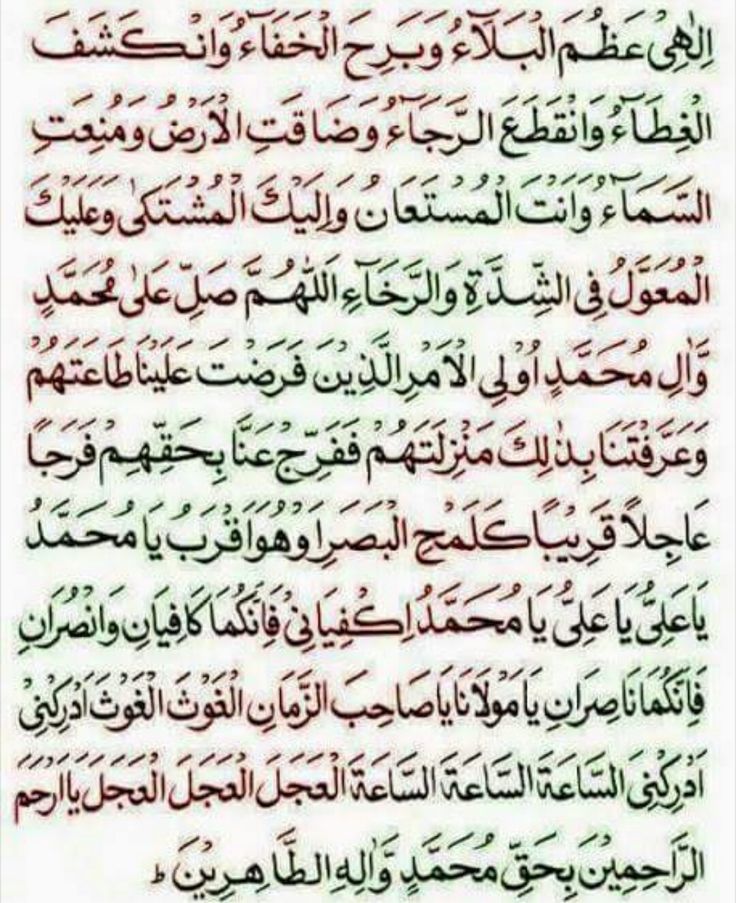 اِلٰهِىْ عَظُمَ الْبَلَآءُ وَبَرِحَ الْخَفَآءُ وَانْكَشَفَ
الْغِطَآءُ وَانْقَطَعَ الرَّجَآءُ وَضَاقَتِ الْاَرْضُ وَمُنِعَتِ
السَّمَآءُ وَاَنْتَ الْمُسْتَعَانُ وَاِلَيْكَ الْمُشْتَكٰى وَعَلَيْكَ
الْمُعَوَّلُ فِى الشِّدَّةِ وَالرَّخَآءِ اَللّٰهُمَّ صَلِّ عَلٰى مُحَمَّدٍ
وَّاٰلِ مُحَمَّدٍ اُوْلِى الْاَمْرِ الَّذِيْنَ فَرَضْتَ عَلَيْنَا طَاعَتَهُمْ
وَعَرَّفْتَنَا بِذٰلِكَ مَنْزِلَتَهُمْ فَفَرِّجْ عَنَّا بِحَقِّهِمْ فَرَجًا
عَاجِلاً قَرِيْبًا كَلَمْحِ الْبَصَرِ اَوْ هُوَ اَقْرَبُ يَا مُحَمَّدُ
يَا عَلِىُّ يَا عَلِىُّ يَا مُحَمَّدُ اِكْفِيَانِىْ فَاِنَّكُمَا كَافِيَانِ وَانْصُرَانِ
فَاِنَّكُمَا نَاصِرَانِ يَا مَوْلَانَا يَا صَاحِبَ الزَّمَانِ الْغَوْثَ الْغَوْثَ اَدْرِكْنِىْ
اَدْرِكْنِى السَّاعَةَ السَّاعَةَ السَّاعَةَ الْعَجَلَ الْعَجَلَ الْعَجَلَ يَا اَرْحَمَ
الرَّاحِمِيْنَ بِحَقِّ مُحَمَّدٍ وَّاٰلِهِ الطَّاهِرِيْنَ ط